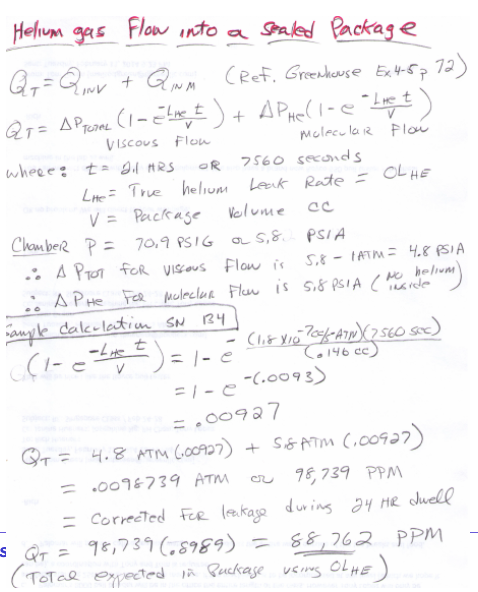 Helium gas Flow into a Sealed Package
QT = QINV + QINM (Ref. Greenhouse Ex 4-5 p 72)
QT = ΔPTOTAL (1 - e^-LHe t/V) + ΔPHe (1 - e^-LHe t/V)
VISCOUS Flow molecular Flow
where: t = 2.1 HRS OR 7560 seconds
LHe = True helium Leak Rate = OLHE
V = Package Volume CC
Chamber P = 70.9 PSIG or 5.8 PSIA
∴ ΔPTOT for viscous Flow is 5.8 - 1ATM = 4.8 PSIA
∴ ΔPHe For molecular Flow is 5.8 PSIA (No helium inside)
Sample Calculation SN B4
(1 - e^-LHe t/V) = 1 - e^-(1.8 x10^-7 cc/s-ATM)(7560 sec)/(.146 cc)
= 1 - e^-(.0093)
= .00927
QT = 4.8 ATM (.00927) + 5.8 ATM (.00927)
= .0098739 ATM or 98,739 PPM
= Corrected FOR leakage during 24 HR dwell
QT = 98,739 (.8989) = 88,762 PPM
(Total expected in Package using OLHE)
s